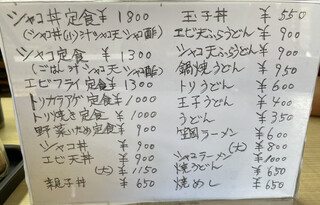 シャコ丼定食 ¥1800
(シャコ丼(小)汁 シャコ天 シャコ酢)
シャコ定食 ¥1300
(ごはん 汁 シャコ天 シャコ酢)
エビフライ定食 ¥1300
トリカラアゲ定食 ¥1000
トリ焼き定食 ¥1000
野菜いため定食 ¥900
シャコ丼 ¥900
エビ天丼 ¥900
(大) ¥1150
親子丼 ¥650
玉子丼 ¥550
エビ天ぷらうどん ¥900
シャコ天ぷらうどん ¥900
鍋焼うどん ¥950
トリうどん ¥600
玉子うどん ¥400
うどん ¥350
ラーメン ¥600
(大) ¥800
シャコラーメン ¥1000
焼うどん ¥650
焼めし ¥650